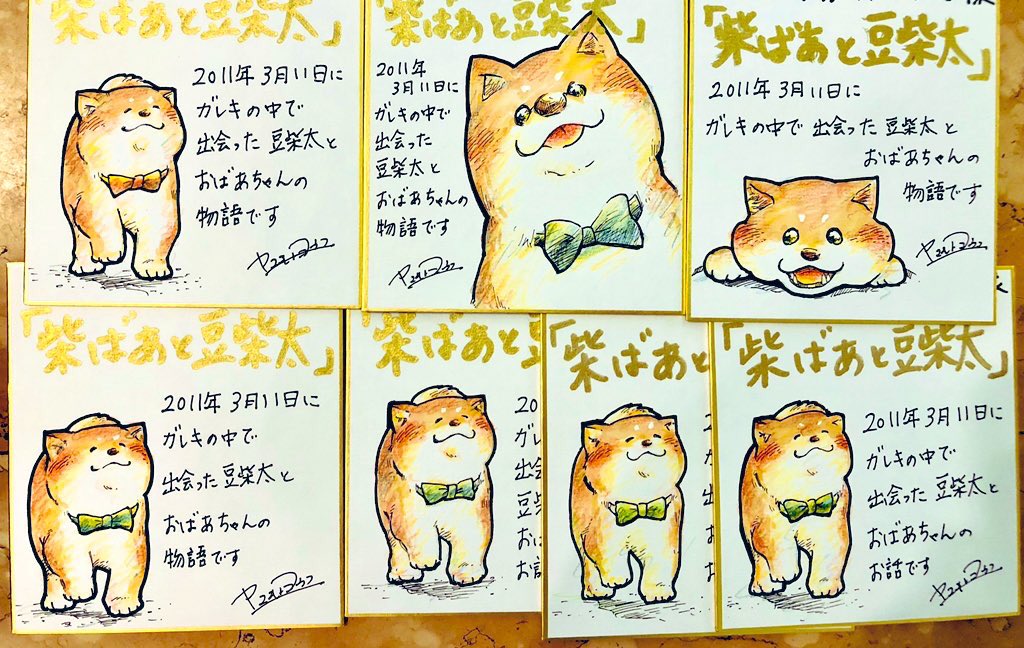 「柴ばあと豆柴太」
2011年3月11日に
ガレキの中で
出会った豆柴太と
おばあちゃんの
物語です
「柴ばあと豆柴太」
2011年
3月11日に
ガレキの中で
出会った
豆柴太と
おばあちゃんの
物語です
「柴ばあと豆柴太」
2011年3月11日に
ガレキの中で出会った豆柴太と
おばあちゃんの
物語です
「柴ばあと豆柴太」
2011年3月11日に
ガレキの中で
出会った豆柴太と
おばあちゃんの
物語です
「柴ばあと豆
20
ガレ
出会
豆柴
おば
お話
「柴ばあと
20
ガ
出
お
「柴ばあと豆柴太」
2011年3月11日に
ガレキの中で
出会った豆柴太と
おばあちゃんの
お話です